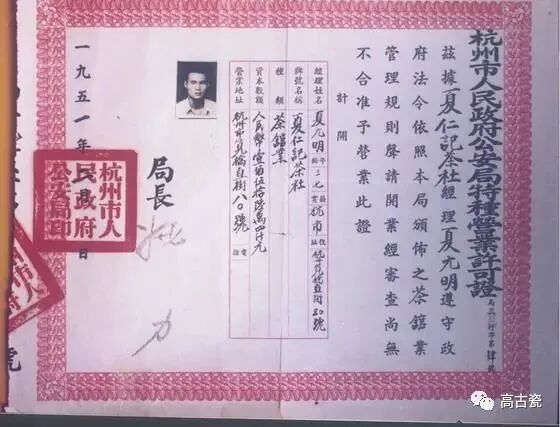 杭州市人民政府公安局特種營業許可證
茲據夏仁記茶社經理夏元明遵守政
府法令依照本局頒佈之茶館業
管理規則聲請開業經審查尚無
不合准予營業此證
計開
經理姓名 夏元明 年齡 二七 籍貫 杭市 住址
牌號名稱 夏仁記茶社
種類 茶館業
資本數額 人民幣壹佰伍拾陸萬四仟元
營業地址 杭州市 橋直街八〇號 電話
局長
一九五一年 日
杭州市人
民政府
公安局印
高古瓷